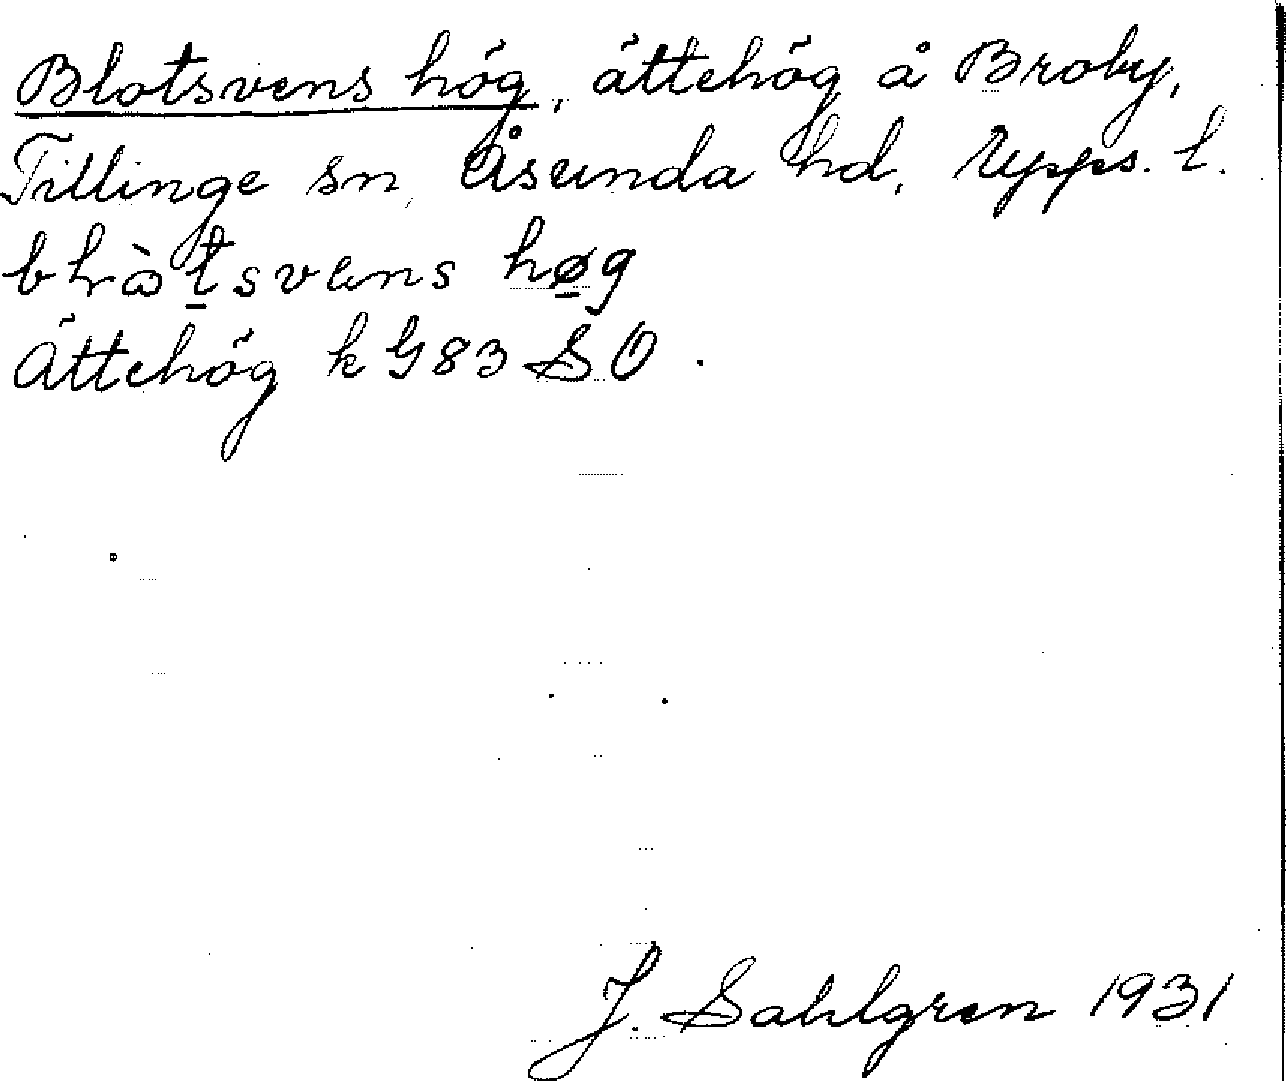 Blotsvens hög, ättehög å Broby,
Tillinge sn, Åsunda hd, Upps. l.
høg
Ättehög k G83 SO.
J. Sahlgren 1931